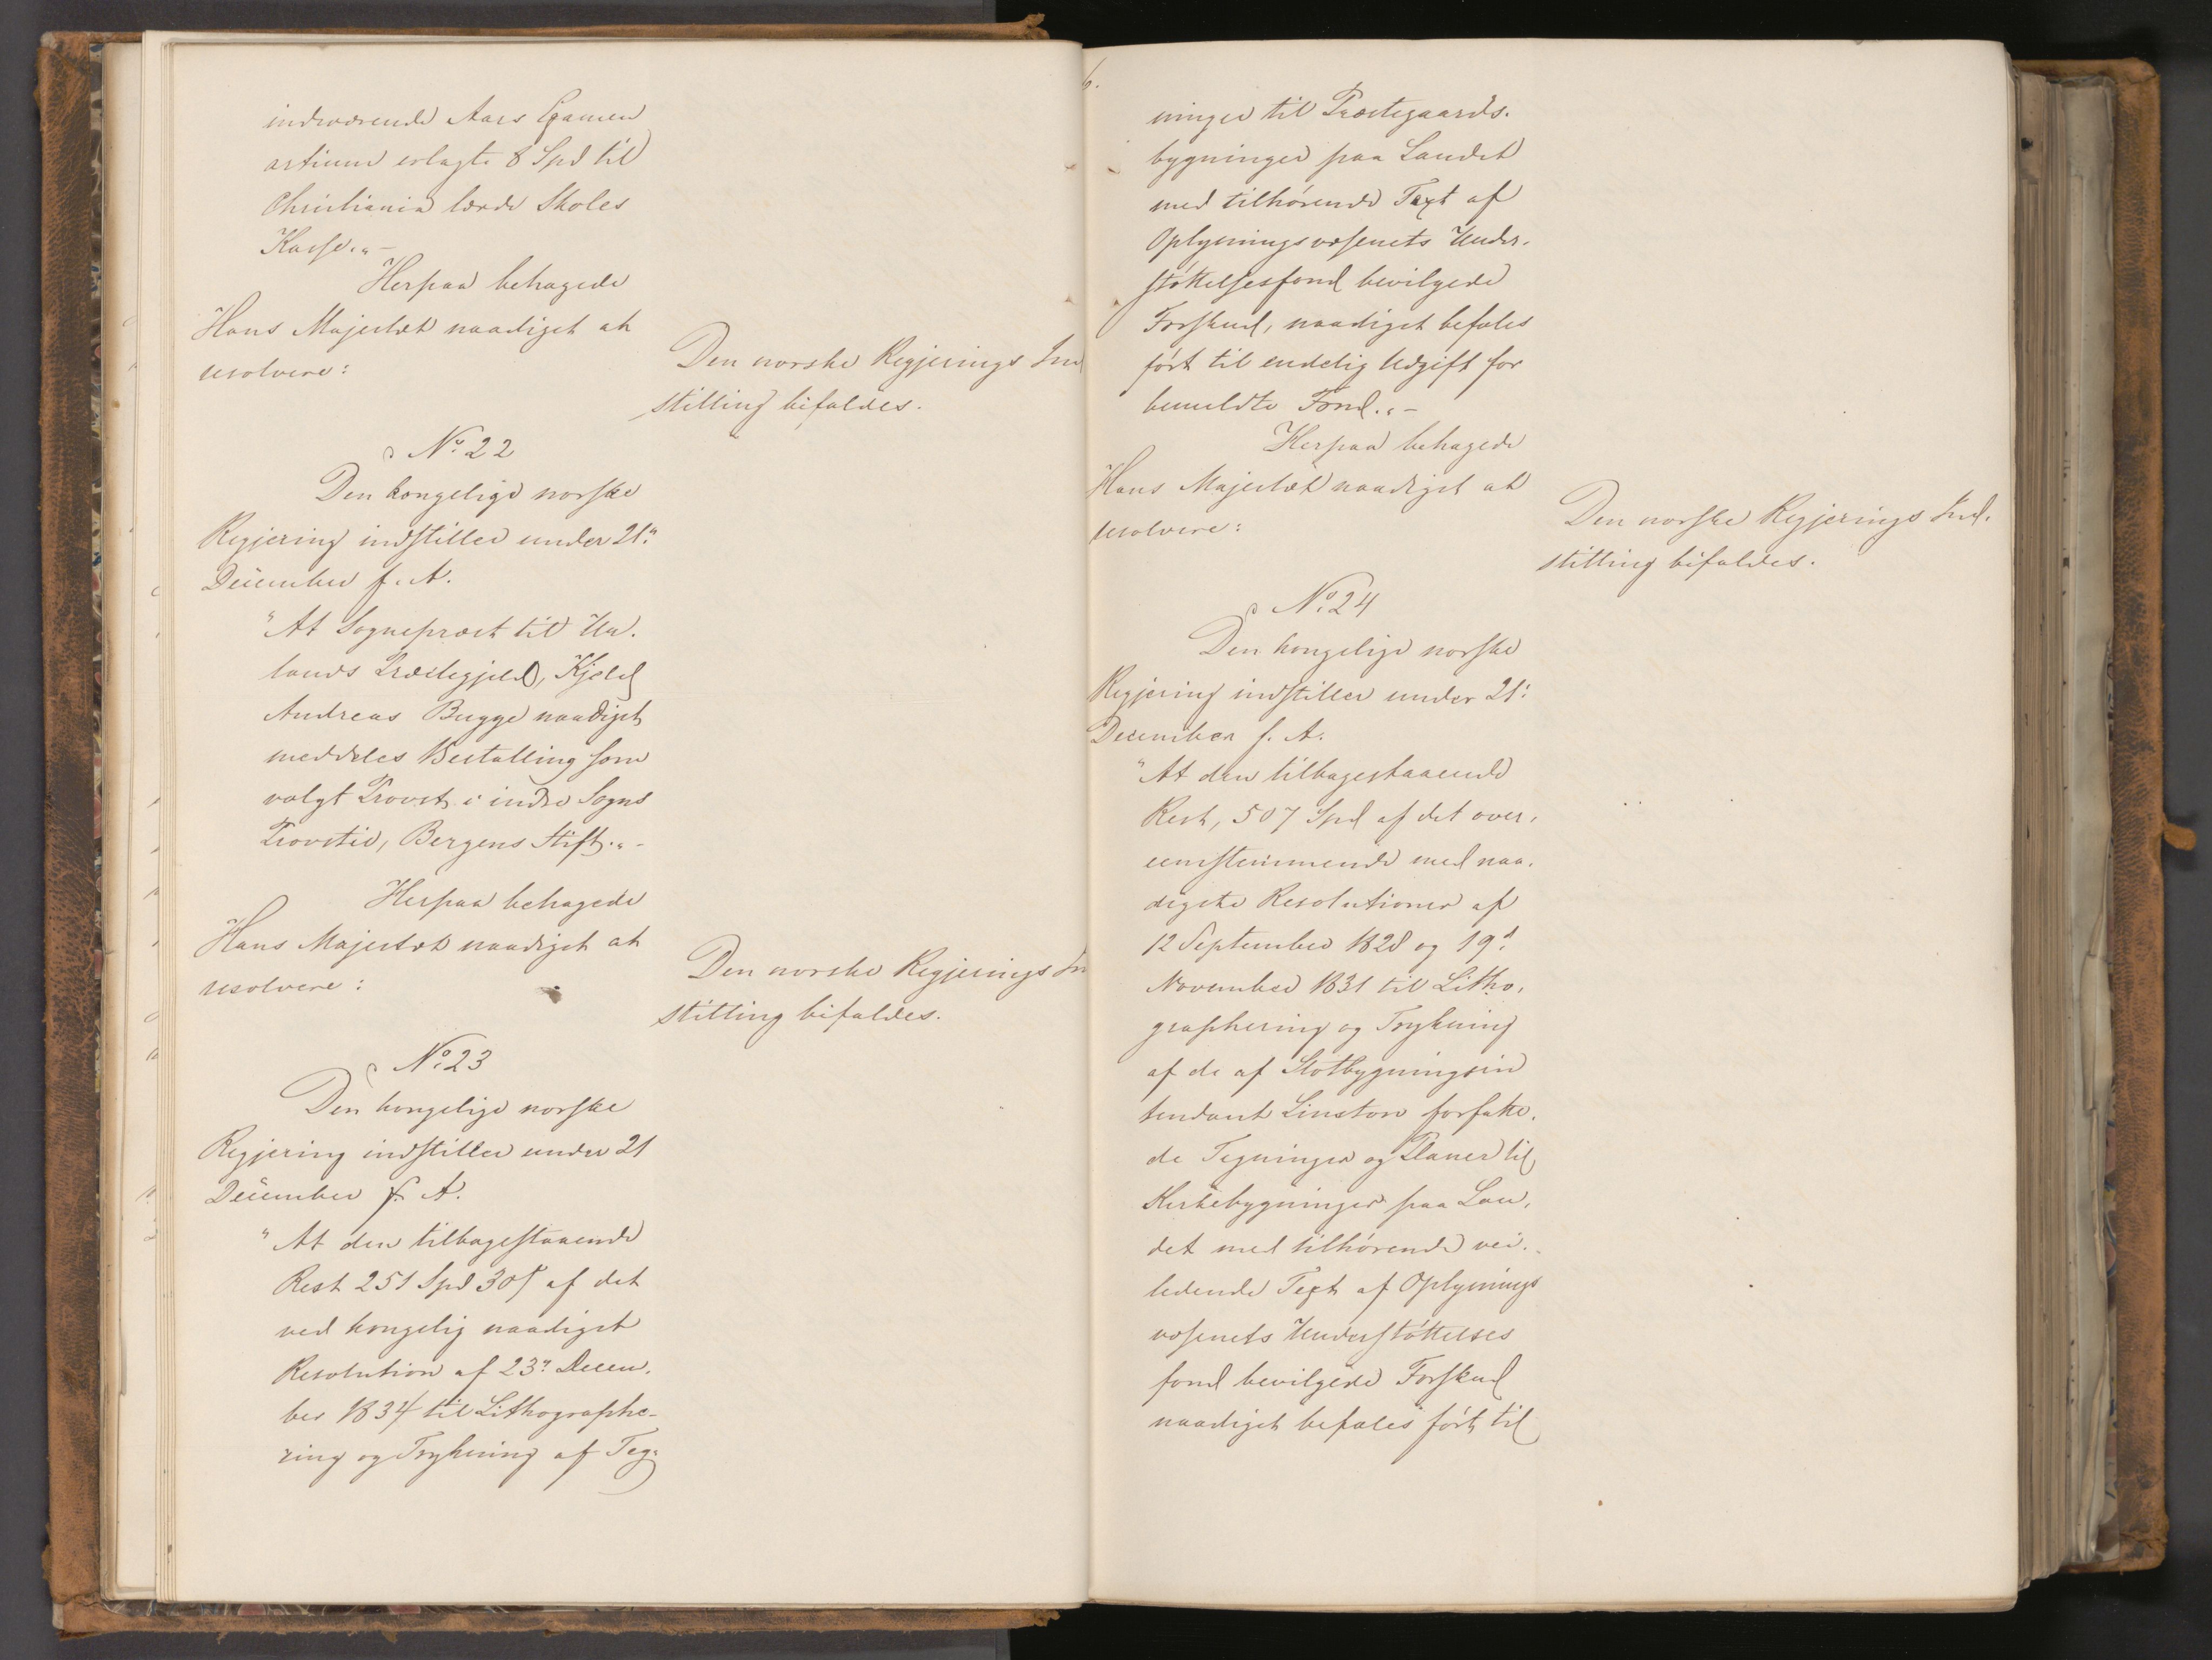 indeværende Aars Examen
artium erlagte 8 Spd til
Christiania lærde Skoles
Kasse."-
Herpaa behagede
Hans Majestæt naadigst at
resolvere:
Den norske Regjerings Ind
stilling bifaldes.
No 22
Den kongelige norske
Regjering indstiller under 21"
December f. A.
"At Sogneprest til Ur-
lands Præstegjeld, Kjeld
Andreas Bugge naadigst
meddeles Bestalling som
valgt Provst i indre Sogns
Provsti, Bergens Stift."-
Herpaa behagede
Hans Majestæt naadigst at
resolvere:
Den norske Regjerings In
stilling bifaldes.
No 23
Den kongelige norske
Regjering indstiller under 21
December f. A.
"At den tilbagestaaende
Rest 251 Spd 30 s af det
ved kongelig naadigst
Resolution af 23" Decem-
ber 1834 til Lithographe-
ring og Trykning af Teg-
6.
ninger til Præstegaards-
bygninger paa Landet
med tilhørende Text af
Oplysningsvæsenets Under-
støttelsesfond bevilgede
Forskud, naadigst befales
ført til endelig Udgift for
bemeldte Fond."-
Herpaa behagede
Hans Majestæt naadigst at
resolvere:
Den norske Regjerings Ind-
stilling bifaldes.
No 24
Den kongelige norske
Regjering indstiller under 21:
December f. A.
"At den tilbagestaaende
Rest, 507 Spd af det over-
eensstemmende med naa-
digste Resolutioner af
12 September 1828 og 19d
November 1831 til Litho-
graphering og Trykning
af de af Slotbygningsin
tendant Linstow forfatte-
de Tegninger og Planer til
Kirkebygninger paa Lan-
det med tilhørende vei-
ledende Text af Oplysnings
væsenets Understøttelses
fond bevilgede Forskud
naadigst befales ført til